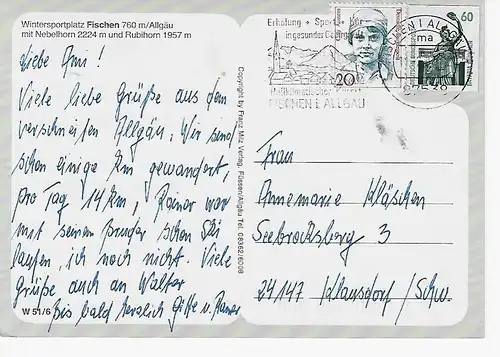 Wintersportplatz Fischen 760 m/Allgäu
mit Nebelhorn 2224 m und Rubihorn 1957 m
Liebe Omi!
Viele liebe Grüße aus dem
verschneiten Allgäu. Wir sind
schon einige km gewandert,
pro Tag 14 km, Rainer war
mit seinem Bruder schon Ski
laufen, ich noch nicht. Viele
Grüße auch an Walter
Bis bald herzlich Gitte u. Rainer
W 51/6
Copyright by Franz Milz Verlag, Füssen/Allgäu Tel. 08362/6008
Erholung + Sport + Kur
in gesunder
Heilklimatischer Kurort
FISCHEN I. ALLGÄU
20
60
FISCHEN I ALLGÄU
ma
87538
Frau
Annemarie Kläschen
Seebrooksberg 3
24147 Klausdorf / Schw.